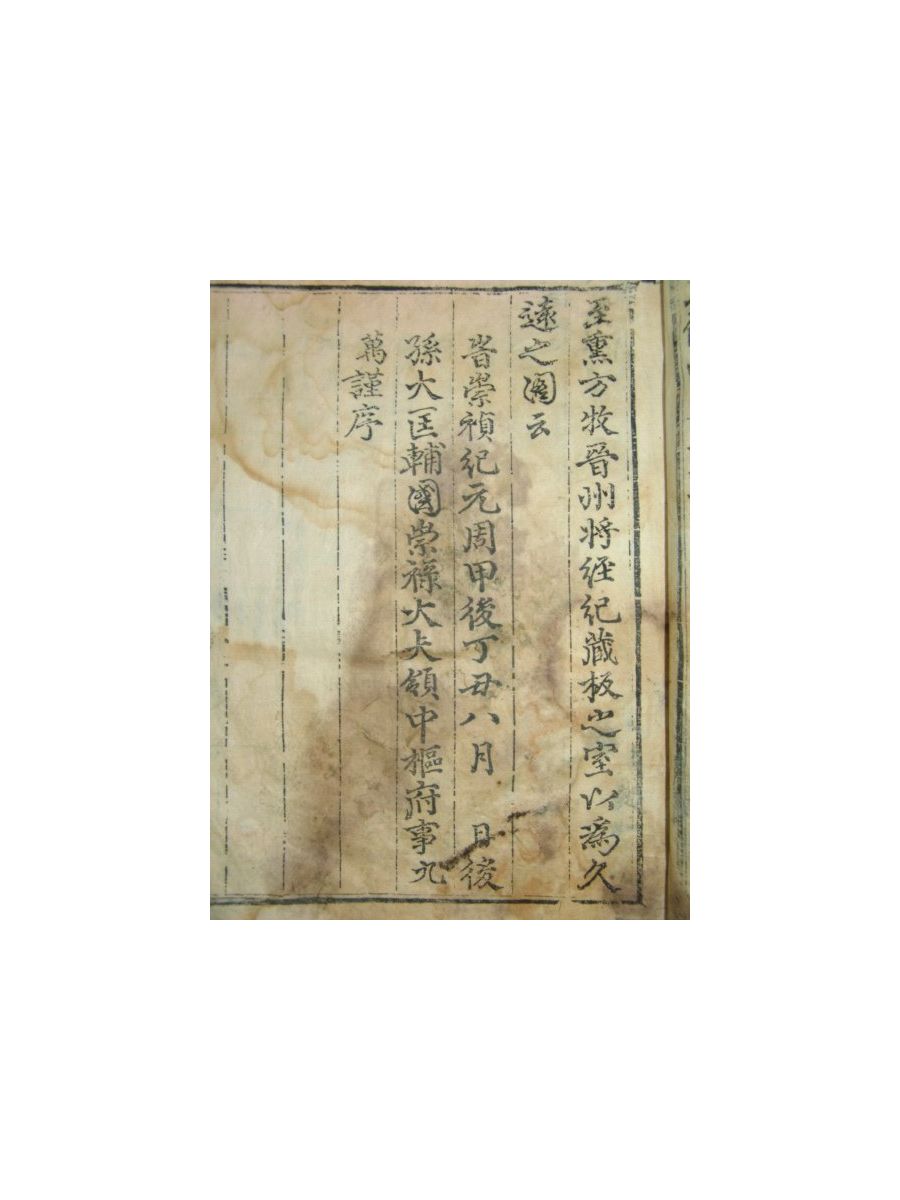 至熏方牧晉州將經紀藏板之室以爲久
遠之圖云
旹崇禎紀元周甲後丁丑八月 日後
孫大匡輔國崇祿大夫領中樞府事九
萬謹序